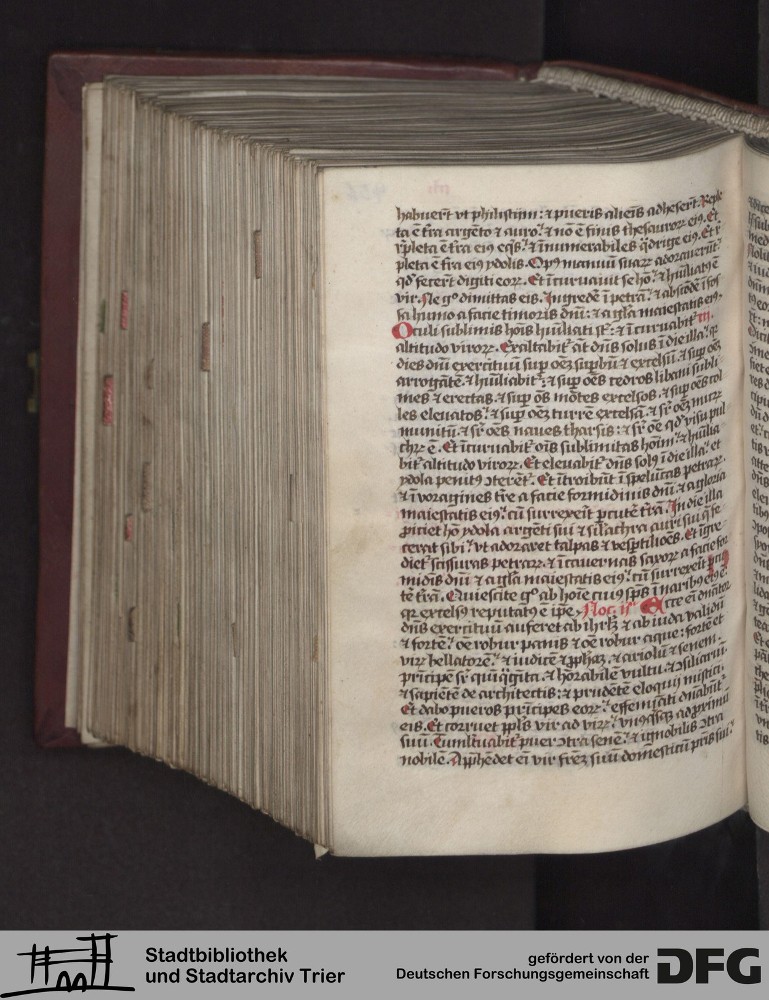 habuerūt vt philistijm: ⁊ pueris alienis adheserūt. Reple
ta ē t̄ra argēto ⁊ auro: ⁊ nō ē finis thesauroꝝ eiꝰ. Et
repleta ē t̄ra eiꝰ eqˢ: ⁊ īnumerabiles q̄drige eiꝰ. Et r̄
pleta ē t̄ra eiꝰ ydolis. Opꝰ manuū suaꝝ adorauerūt
qđ fecer̄t digiti eoꝝ. Et īcuruauit se hō: ⁊ hūiliatꝰ ē
vir. Ne gº dimittas eis. Ingredē ī petrā: ⁊ abscōde ī fos
sa humo a facie timoris dn̄i: ⁊ a gl̄a maiestatis eiꝰ.
Oculi sublimis hoīs hūiliati st̄: ⁊ īcuruabit̄
altitudo viroꝝ. Exaltabit̄ āt dn̄s solus ī die illa: qꝛ
dies dn̄i exercituū sup oēꝫ supbū ⁊ excelsū: ⁊ sup oēꝫ
arrogātē: ⁊ hūiliabit̄: ⁊ sup oēs cedros libani subli
mes ⁊ erectas: ⁊ sup oēs mōtes excelsos: ⁊ sup oēs col
les eleuatos: ⁊ sup oēꝫ turrē excelsā: ⁊ sr̄ oēꝫ murū
munitū: ⁊ sr̄ oēs naues tharsis: ⁊ sr̄ oē qđ visu pul
chꝝ ē. Et īcuruabit̄ oīs sublimitas hoīm: ⁊ hūilia
bit̄ altitudo viroꝝ. Et eleuabit̄ dn̄s solꝰ ī die illa: et
ydola penitꝰ ꝯterēt̄. Et ītroibūt ī speluncas petraꝝ.
⁊ ī voragines t̄re a facie formidinis dn̄i: ⁊ a gloria
maiestatis eiꝰ: cū surrexerit pcutē t̄rā. In die illa
ꝓiciet hō ydola argēti sui ⁊ silachra auri sui q̄ fe
cerat sibi: vt adoraret talpas ⁊ vesptilioēs. Et īgre
diet̄ scissuras petraꝝ: ⁊ ī cauernas saxoꝝ a facie for
midinis dn̄i ⁊ a gl̄a maiestatis eiꝰ: cū surrexerit pcu
tē t̄rā. Quiescite gº ab hoīe cuiꝰ sp̄s ī naribꝰ eiꝰ ē:
qꝛ excelsꝰ reputatꝰ ē ip̄e. Ecce eī dn̄ator
dn̄s exercituū auferet ab ihrl̄m ⁊ ab iuda validū
⁊ fortē: oē robur panis ⁊ oē robur aque: fortē et
virū bellatorē: ⁊ iudicē ⁊ ꝓphaꝫ: ⁊ ariolū ⁊ senem:
prīcipē sr̄ quīq̄gīta: ⁊ hōrabilē vultu: ⁊ ꝯsiliariū:
⁊ sapiētē de architectis: ⁊ prudētē eloquij mistici.
Et dabo pueros prīcipes eoꝝ: ⁊ effemīati dn̄abūt̄
eis. Et corruet ppl̄s vir ad virū: vnꝰqsqꝫ ad proximū
suū. Tumltuabit̄ puer ꝯtra senē: ⁊ ignobilis ꝯtra
nobilē. Apphēdet eī vir fr̄eꝫ suū domesticū pr̄is sui:
Stadtbibliothek
und Stadtarchiv Trier
gefördert von der
Deutschen Forschungsgemeinschaft
DFG